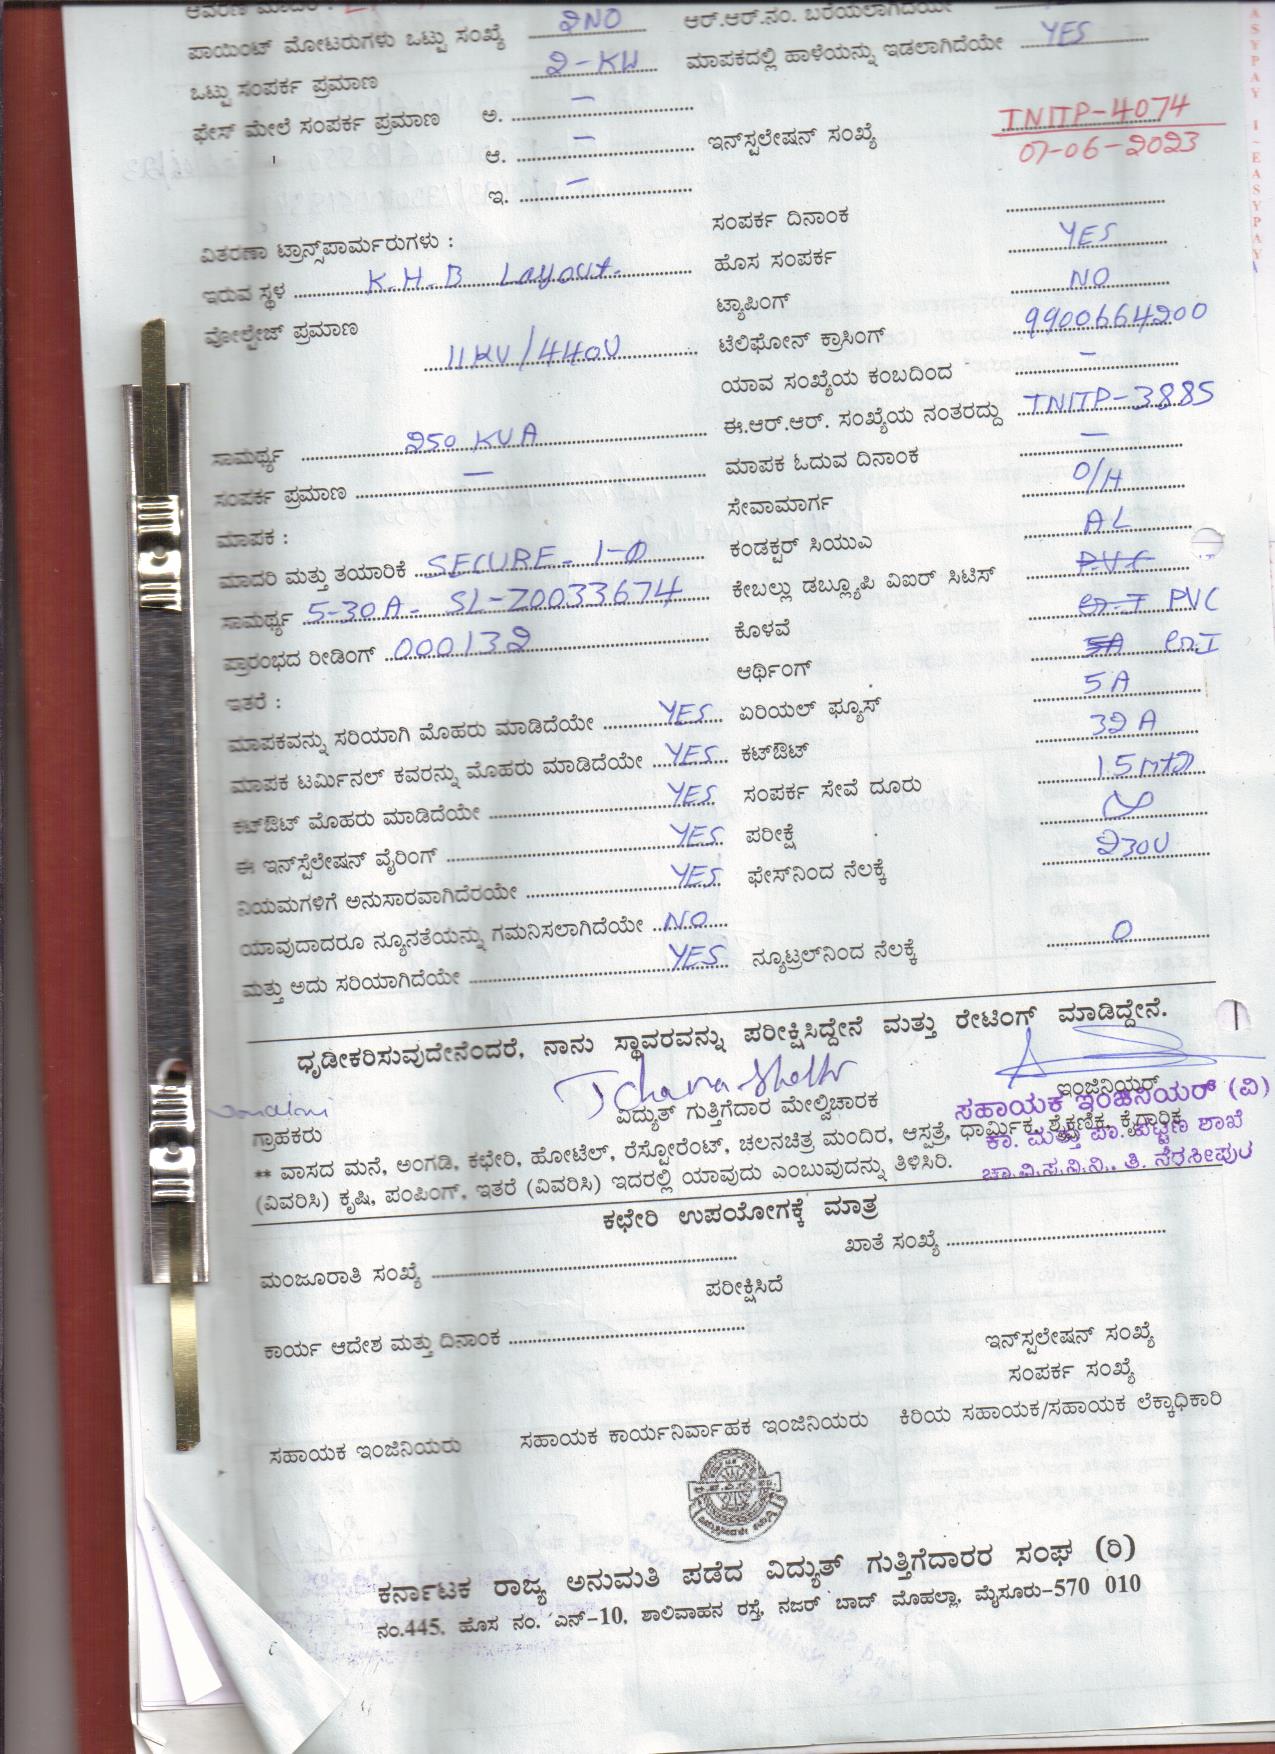 ಪಾಯಿಂಟ್ ಮೋಟರುಗಳು ಒಟ್ಟು ಸಂಖ್ಯೆ 2NO ಆರ್.ಆರ್.ನಂ. ಬರೆಯಲಾಗಿದೆಯೇ
ಒಟ್ಟು ಸಂಪರ್ಕ ಪ್ರಮಾಣ 2-KW ಮಾಪಕದಲ್ಲಿ ಹಾಳೆಯನ್ನು ಇಡಲಾಗಿದೆಯೇ YES
ಫೇಸ್ ಮೇಲೆ ಸಂಪರ್ಕ ಪ್ರಮಾಣ ಅ. –
ಆ. – ಇನ್‌ಸ್ಟಲೇಷನ್ ಸಂಖ್ಯೆ TNITP-4074
07-06-2023
ಇ. –
ಸಂಪರ್ಕ ದಿನಾಂಕ
ವಿತರಣಾ ಟ್ರಾನ್ಸ್‌ಪಾರ್ಮರುಗಳು :
ಇರುವ ಸ್ಥಳ K.H.B Layout. ಹೊಸ ಸಂಪರ್ಕ YES
ಟ್ಯಾಪಿಂಗ್ NO
ವೋಲ್ಟೇಜ್ ಪ್ರಮಾಣ 11KV/440V ಟೆಲಿಫೋನ್ ಕ್ರಾಸಿಂಗ್ 9900664200
ಯಾವ ಸಂಖ್ಯೆಯ ಕಂಬದಿಂದ –
ಸಾಮರ್ಥ್ಯ 250 KVA ಈ.ಆರ್.ಆರ್. ಸಂಖ್ಯೆಯ ನಂತರದ್ದು TNITP-3885
ಸಂಪರ್ಕ ಪ್ರಮಾಣ – ಮಾಪಕ ಓದುವ ದಿನಾಂಕ –
ಮಾಪಕ : ಸೇವಾಮಾರ್ಗ O/H
ಮಾದರಿ ಮತ್ತು ತಯಾರಿಕೆ SECURE-1-Φ ಕಂಡಕ್ಟರ್ ಸಿಯುಎ AL
ಸಾಮರ್ಥ್ಯ 5-30A- SL-Z0033674 ಕೇಬಲ್ಲು ಡಬ್ಲ್ಯೂಪಿ ವಿಐರ್ ಸಿಟಿಸ್ PVC
ಪ್ರಾರಂಭದ ರೀಡಿಂಗ್ 000132 ಕೊಳವೆ PVC
ಇತರೆ : ಆರ್ಥಿಂಗ್ 5A
ಮಾಪಕವನ್ನು ಸರಿಯಾಗಿ ಮೊಹರು ಮಾಡಿದೆಯೇ YES ಏರಿಯಲ್ ಫ್ಯೂಸ್ 5A
ಮಾಪಕ ಟರ್ಮಿನಲ್ ಕವರನ್ನು ಮೊಹರು ಮಾಡಿದೆಯೇ YES ಕಟ್‌ಔಟ್ 32A
ಕಟ್‌ಔಟ್ ಮೊಹರು ಮಾಡಿದೆಯೇ YES ಸಂಪರ್ಕ ಸೇವೆ ದೂರು 15
ಈ ಇನ್‌ಸ್ಟೆಲೇಷನ್ ವೈರಿಂಗ್ YES ಪರೀಕ್ಷೆ
ನಿಯಮಗಳಿಗೆ ಅನುಸಾರವಾಗಿದೆರಯೇ YES ಫೇಸ್‌ನಿಂದ ನೆಲಕ್ಕೆ 230V
ಯಾವುದಾದರೂ ನ್ಯೂನತೆಯನ್ನು ಗಮನಿಸಲಾಗಿದೆಯೇ NO
ಮತ್ತು ಅದು ಸರಿಯಾಗಿದೆಯೇ YES ನ್ಯೂಟ್ರಲ್‌ನಿಂದ ನೆಲಕ್ಕೆ 0
ಧೃಡೀಕರಿಸುವುದೇನೆಂದರೆ, ನಾನು ಸ್ಥಾವರವನ್ನು ಪರೀಕ್ಷಿಸಿದ್ದೇನೆ ಮತ್ತು ರೇಟಿಂಗ್ ಮಾಡಿದ್ದೇನೆ.
ಗ್ರಾಹಕರು ವಿದ್ಯುತ್ ಗುತ್ತಿಗೆದಾರ ಮೇಲ್ವಿಚಾರಕ ಇಂಜಿನಿಯರ್
ಸಹಾಯಕ ಇಂಜಿನಿಯರ್ (ವಿ)
ಕಾ. ಮತ್ತು ಪಾ. ಪಟ್ಟಣ ಶಾಖೆ
ಚಾ.ವಿ.ಸ.ನಿ.ನಿ., ತಿ. ನರಸೀಪುರ
** ವಾಸದ ಮನೆ, ಅಂಗಡಿ, ಕಛೇರಿ, ಹೋಟೆಲ್, ರೆಸ್ಟೋರೆಂಟ್, ಚಲನಚಿತ್ರ ಮಂದಿರ, ಆಸ್ಪತ್ರೆ, ಧಾರ್ಮಿಕ, ಶೈಕ್ಷಣಿಕ, ಕೈಗಾರಿಕ
(ವಿವರಿಸಿ) ಕೃಷಿ, ಪಂಪಿಂಗ್, ಇತರೆ (ವಿವರಿಸಿ) ಇದರಲ್ಲಿ ಯಾವುದು ಎಂಬುವುದನ್ನು ತಿಳಿಸಿರಿ.
ಕಛೇರಿ ಉಪಯೋಗಕ್ಕೆ ಮಾತ್ರ
ಮಂಜೂರಾತಿ ಸಂಖ್ಯೆ ಖಾತೆ ಸಂಖ್ಯೆ
ಪರೀಕ್ಷಿಸಿದೆ
ಕಾರ್ಯ ಆದೇಶ ಮತ್ತು ದಿನಾಂಕ
ಇನ್‌ಸ್ಟಲೇಷನ್ ಸಂಖ್ಯೆ
ಸಂಪರ್ಕ ಸಂಖ್ಯೆ
ಸಹಾಯಕ ಇಂಜಿನಿಯರು ಸಹಾಯಕ ಕಾರ್ಯನಿರ್ವಾಹಕ ಇಂಜಿನಿಯರು ಕಿರಿಯ ಸಹಾಯಕ/ಸಹಾಯಕ ಲೆಕ್ಕಾಧಿಕಾರಿ
ಕರ್ನಾಟಕ ರಾಜ್ಯ ಅನುಮತಿ ಪಡೆದ ವಿದ್ಯುತ್ ಗುತ್ತಿಗೆದಾರರ ಸಂಘ (ರಿ)
ನಂ.445, ಹೊಸ ನಂ. ಎನ್-10, ಶಾಲಿವಾಹನ ರಸ್ತೆ, ನಜರ್ ಬಾದ್ ಮೊಹಲ್ಲಾ, ಮೈಸೂರು-570 010